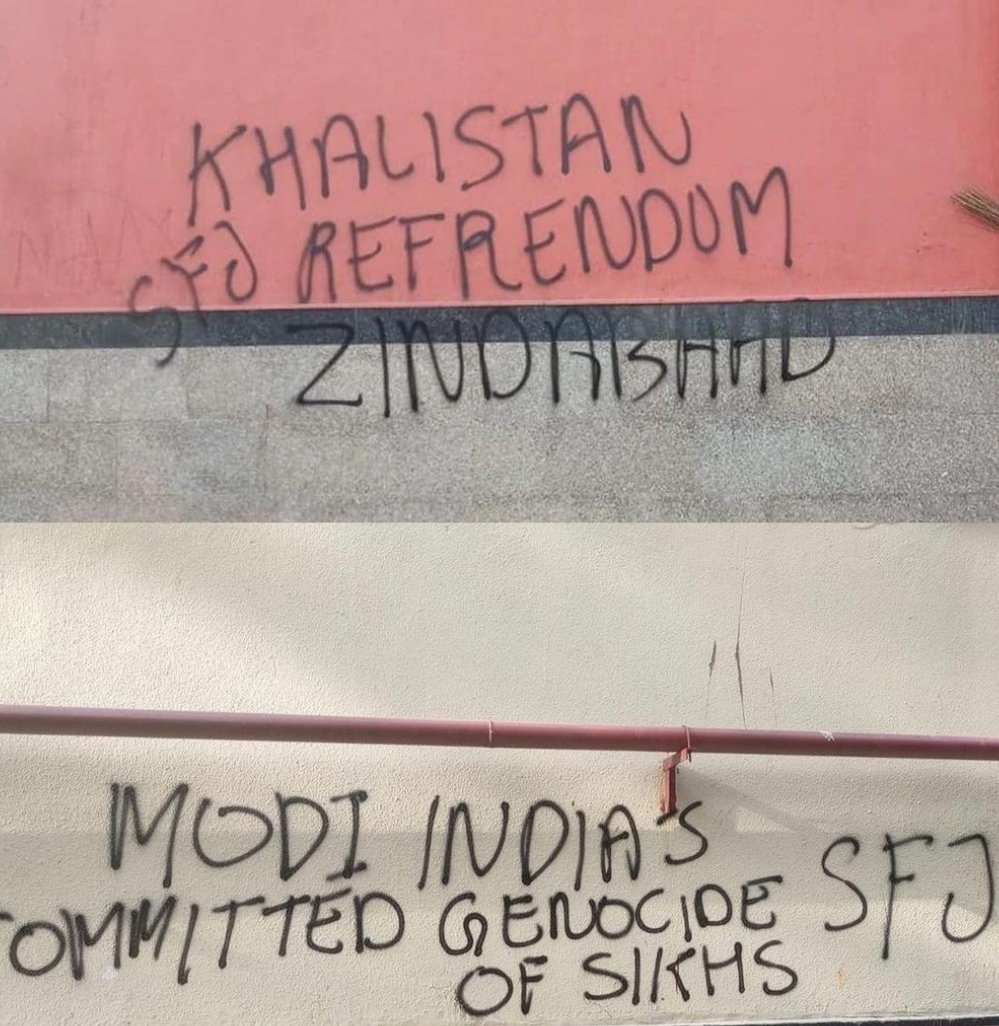 KHALISTAN
SFJ REFRENDUM
ZINDABAAD
MODI INDIA'S
COMMITTED GENOCIDE SFJ
OF SIKHS